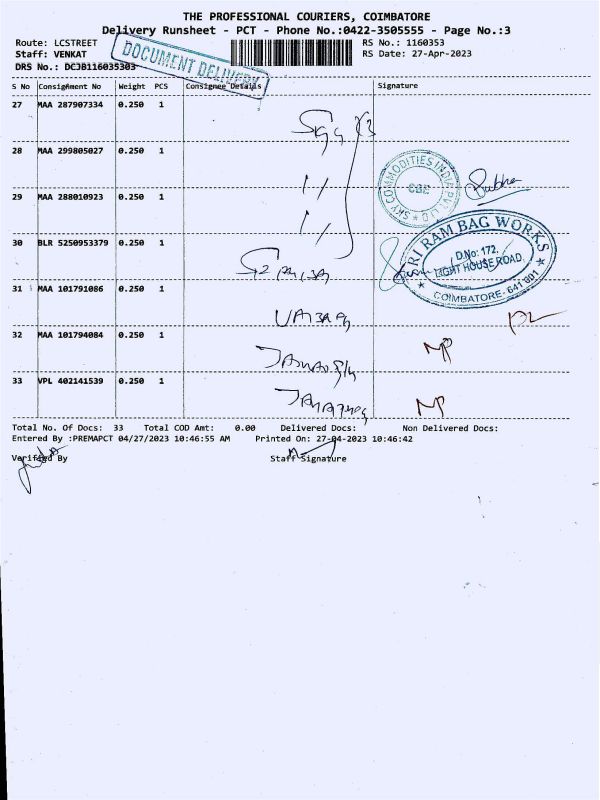 THE PROFESSIONAL COURIERS, COIMBATORE
Delivery Runsheet - PCT - Phone No.:0422-3505555 - Page No.:3
Route: LCSTREET
RS No.: 1160353
Staff: VENKAT
RS Date: 27-Apr-2023
DRS No.: DCJB116035303
DOCUMENT DELIVERY
S No Consignment No Weight PCS Consignee Details Signature
27 MAA 287907334 0.250 1
28 MAA 299805027 0.250 1
SKY COMMODITIES INDIA PVT LTD
CBE
29 MAA 288010923 0.250 1
SRI RAM BAG WORKS
D.No: 172,
LIGHT HOUSE ROAD,
COIMBATORE-641 001
30 BLR 5250953379 0.250 1
31 MAA 101791086 0.250 1
32 MAA 101794084 0.250 1
33 VPL 402141539 0.250 1
Total No. Of Docs: 33 Total COD Amt: 0.00 Delivered Docs: Non Delivered Docs:
Entered By :PREMAPCT 04/27/2023 10:46:55 AM Printed On: 27-04-2023 10:46:42
Verified By Staff Signature